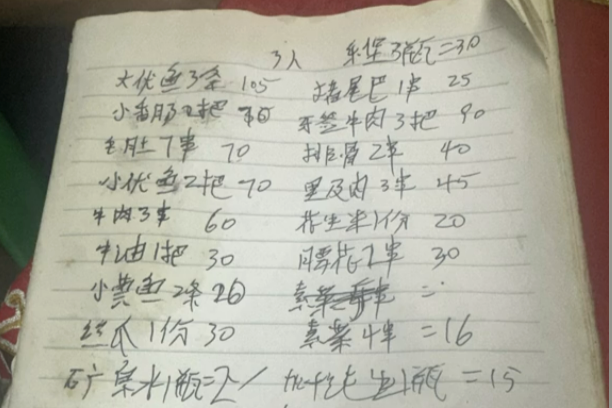 3人 乐堡3瓶=30
大优鱼3条 105 猪尾巴1串 25
小香肠2把 牙签牛肉3把 90
毛肚7串 70 排骨2串 40
小优鱼2把 70 里及肉3串 45
牛肉3串 60 花生米1份 20
牛油1把 30 腰花2串 30
小黄鱼2条 20 素菜
丝瓜1份 30 素菜4串 =16
矿泉水1瓶=2 1瓶 =15